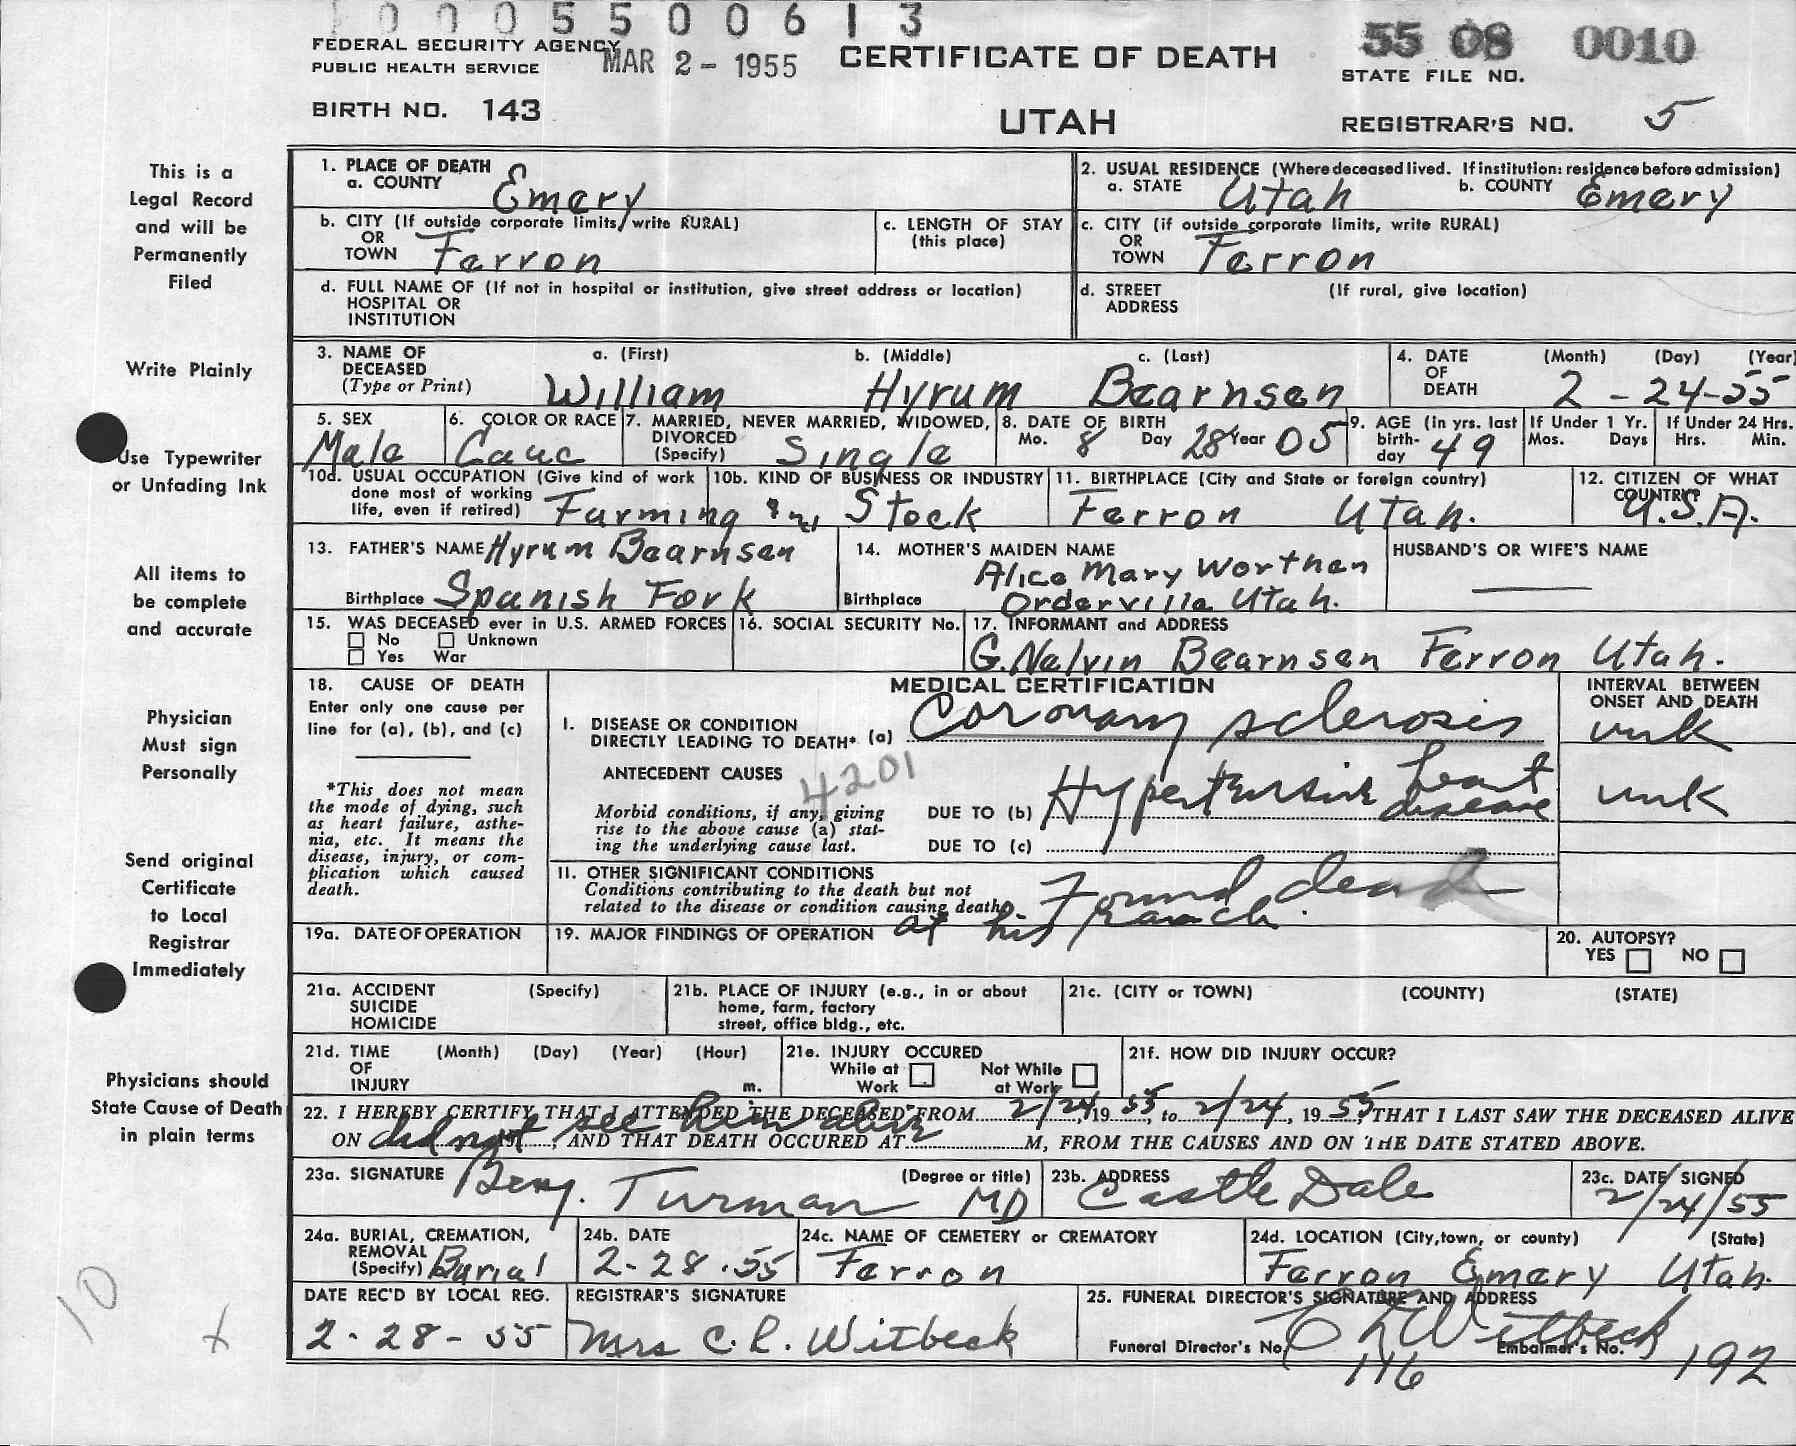 1 0 0 0 5 5 0 0 6 1 3
FEDERAL SECURITY AGENCY
PUBLIC HEALTH SERVICE
MAR 2 - 1955
CERTIFICATE OF DEATH
55 08 0010
STATE FILE NO.
BIRTH NO. 143
UTAH
REGISTRAR'S NO. 5
This is a
Legal Record
and will be
Permanently
Filed
Write Plainly
Use Typewriter
or Unfading Ink
All items to
be complete
and accurate
Physician
Must sign
Personally
Send original
Certificate
to Local
Registrar
Immediately
Physicians should
State Cause of Death
in plain terms
10
1. PLACE OF DEATH
a. COUNTY Emery
2. USUAL RESIDENCE (Where deceased lived. If institution: residence before admission)
a. STATE Utah b. COUNTY Emery
b. CITY (If outside corporate limits, write RURAL)
OR
TOWN Ferron
c. LENGTH OF STAY
(this place)
c. CITY (if outside corporate limits, write RURAL)
OR
TOWN Ferron
d. FULL NAME OF (If not in hospital or institution, give street address or location)
HOSPITAL OR
INSTITUTION
d. STREET (If rural, give location)
ADDRESS
3. NAME OF
DECEASED
(Type or Print)
a. (First) b. (Middle) c. (Last)
William Hyrum Bearnsen
4. DATE
OF
DEATH
(Month) (Day) (Year)
2 - 24-55
5. SEX
Male
6. COLOR OR RACE
Cauc
7. MARRIED, NEVER MARRIED, WIDOWED,
DIVORCED
(Specify) Single
8. DATE OF BIRTH
Mo. 8 Day 28 Year 05
9. AGE (in yrs. last
birth-
day 49
If Under 1 Yr.
Mos. Days
If Under 24 Hrs.
Hrs. Min.
10a. USUAL OCCUPATION (Give kind of work
done most of working
life, even if retired) Farming
10b. KIND OF BUSINESS OR INDUSTRY
Stock
11. BIRTHPLACE (City and State or foreign country)
Ferron Utah.
12. CITIZEN OF WHAT
COUNTRY?
U.S.A.
13. FATHER'S NAME Hyrum Bearnsen
Birthplace Spanish Fork
14. MOTHER'S MAIDEN NAME
Alice Mary Worthen
Birthplace Orderville Utah.
HUSBAND'S OR WIFE'S NAME
15. WAS DECEASED ever in U.S. ARMED FORCES
No Unknown
Yes War
16. SOCIAL SECURITY No.
17. INFORMANT and ADDRESS
G. Nelvin Bearnsen Ferron Utah.
18. CAUSE OF DEATH
Enter only one cause per
line for (a), (b), and (c)
*This does not mean
the mode of dying, such
as heart failure, asthe-
nia, etc. It means the
disease, injury, or com-
plication which caused
death.
MEDICAL CERTIFICATION
INTERVAL BETWEEN
ONSET AND DEATH
I. DISEASE OR CONDITION
DIRECTLY LEADING TO DEATH* (a) Coronary sclerosis unk
ANTECEDENT CAUSES 4201
Morbid conditions, if any, giving
rise to the above cause (a) stat-
ing the underlying cause last.
DUE TO (b) Hypertensive heart disease unk
DUE TO (c)
II. OTHER SIGNIFICANT CONDITIONS
Conditions contributing to the death but not
related to the disease or condition causing death.
Found dead
at his ranch.
19a. DATE OF OPERATION
19. MAJOR FINDINGS OF OPERATION
20. AUTOPSY?
YES NO
21a. ACCIDENT (Specify)
SUICIDE
HOMICIDE
21b. PLACE OF INJURY (e.g., in or about
home, farm, factory
street, office bldg., etc.
21c. (CITY or TOWN) (COUNTY) (STATE)
21d. TIME (Month) (Day) (Year) (Hour)
OF
INJURY m.
21e. INJURY OCCURED
While at Work Not While at Work
21f. HOW DID INJURY OCCUR?
22. I HEREBY CERTIFY THAT I ATTENDED THE DECEASED FROM 2/24 19 55, to 2/24, 19 55, THAT I LAST SAW THE DECEASED ALIVE
ON did not see him alive 19 , AND THAT DEATH OCCURED AT M, FROM THE CAUSES AND ON THE DATE STATED ABOVE.
23a. SIGNATURE (Degree or title)
Benj. Turman MD
23b. ADDRESS
Castle Dale
23c. DATE SIGNED
2/24/55
24a. BURIAL, CREMATION,
REMOVAL
(Specify) Burial
24b. DATE
2-28-55
24c. NAME OF CEMETERY or CREMATORY
Ferron
24d. LOCATION (City, town, or county) (State)
Ferron Emery Utah.
DATE REC'D BY LOCAL REG.
2-28-55
REGISTRAR'S SIGNATURE
Mrs C. L. Witbeck
25. FUNERAL DIRECTOR'S SIGNATURE AND ADDRESS
C L Witbeck
Funeral Director's No. 116
Embalmer's No. 192